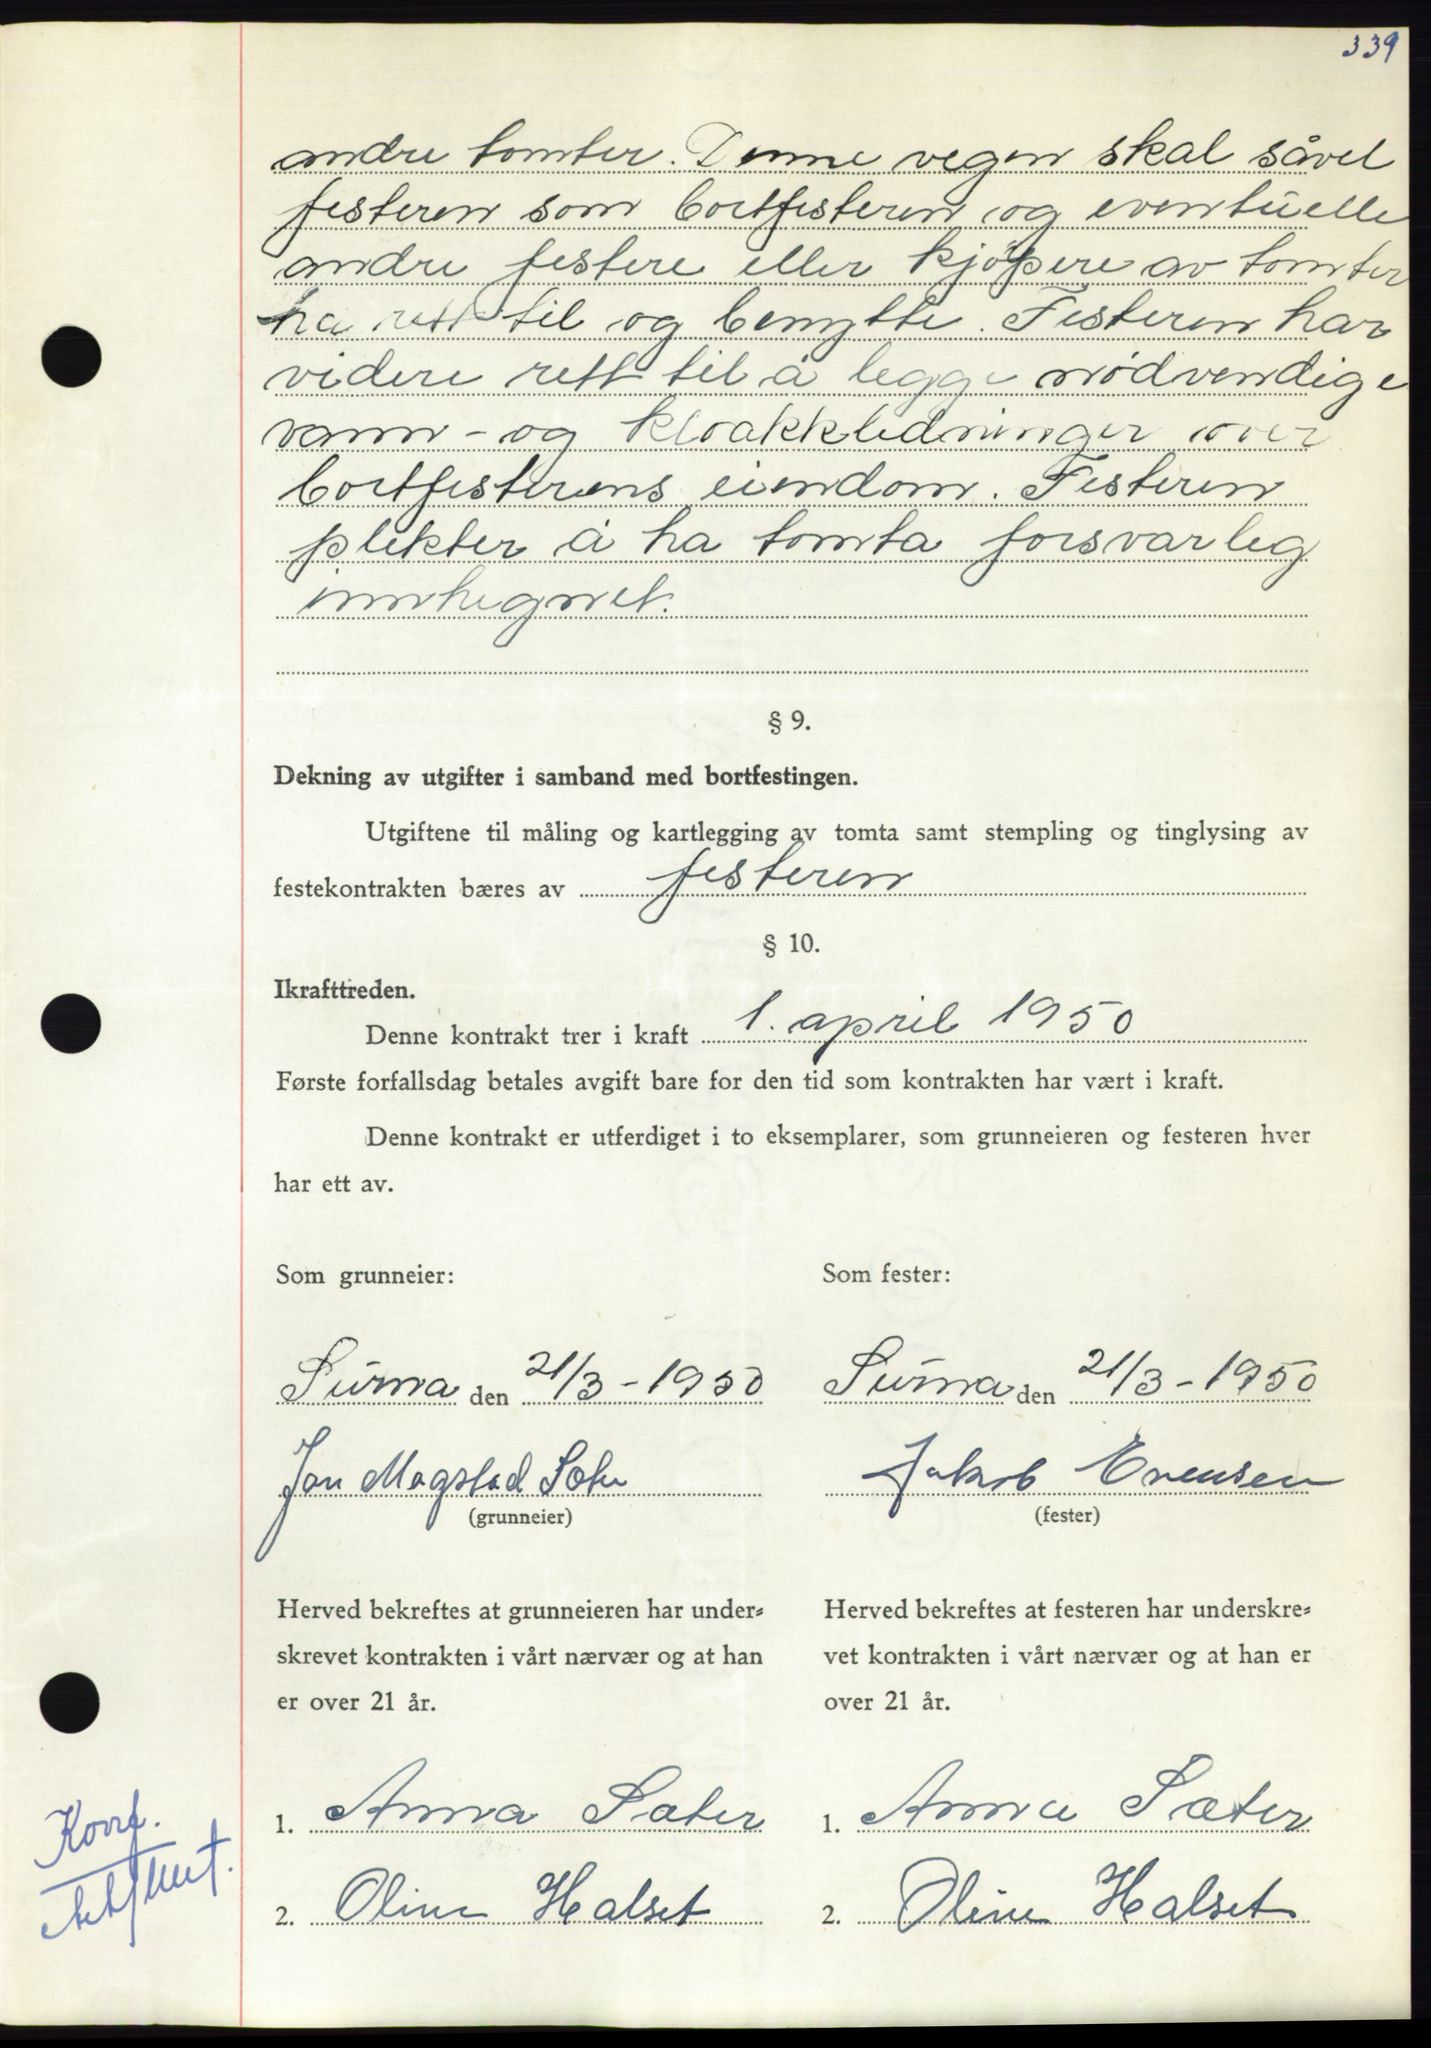 339
andre tomter. Denne vegen skal såvel
festeren som bortfesteren og eventuelle
andre festere eller kjøpere av tomter
ha rett til og benytte. Festeren har
videre rett til å legge nødvendige
vann- og kloakkledninger over
bortfesterens eiendom. Festeren
plikter å ha tomta forsvarleg
innhegnet.
§ 9.
Dekning av utgifter i samband med bortfestingen.
Utgiftene til måling og kartlegging av tomta samt stempling og tinglysing av
festekontrakten bæres av festeren
§ 10.
Ikrafttreden.
Denne kontrakt trer i kraft 1. april 1950
Første forfallsdag betales avgift bare for den tid som kontrakten har vært i kraft.
Denne kontrakt er utferdiget i to eksemplarer, som grunneieren og festeren hver
har ett av.
Som grunneier: Som fester:
Surna den 21/3-1950 Surna den 21/3-1950
Jon Magstad Sæter Jakob Evensen
(grunneier) (fester)
Herved bekreftes at grunneieren har under-
skrevet kontrakten i vårt nærvær og at han
er over 21 år.
Herved bekreftes at festeren har underskre-
vet kontrakten i vårt nærvær og at han er
over 21 år.
1. Anna Sæter 1. Anna Sæter
2. Oline Halset 2. Oline Halset
Konf.